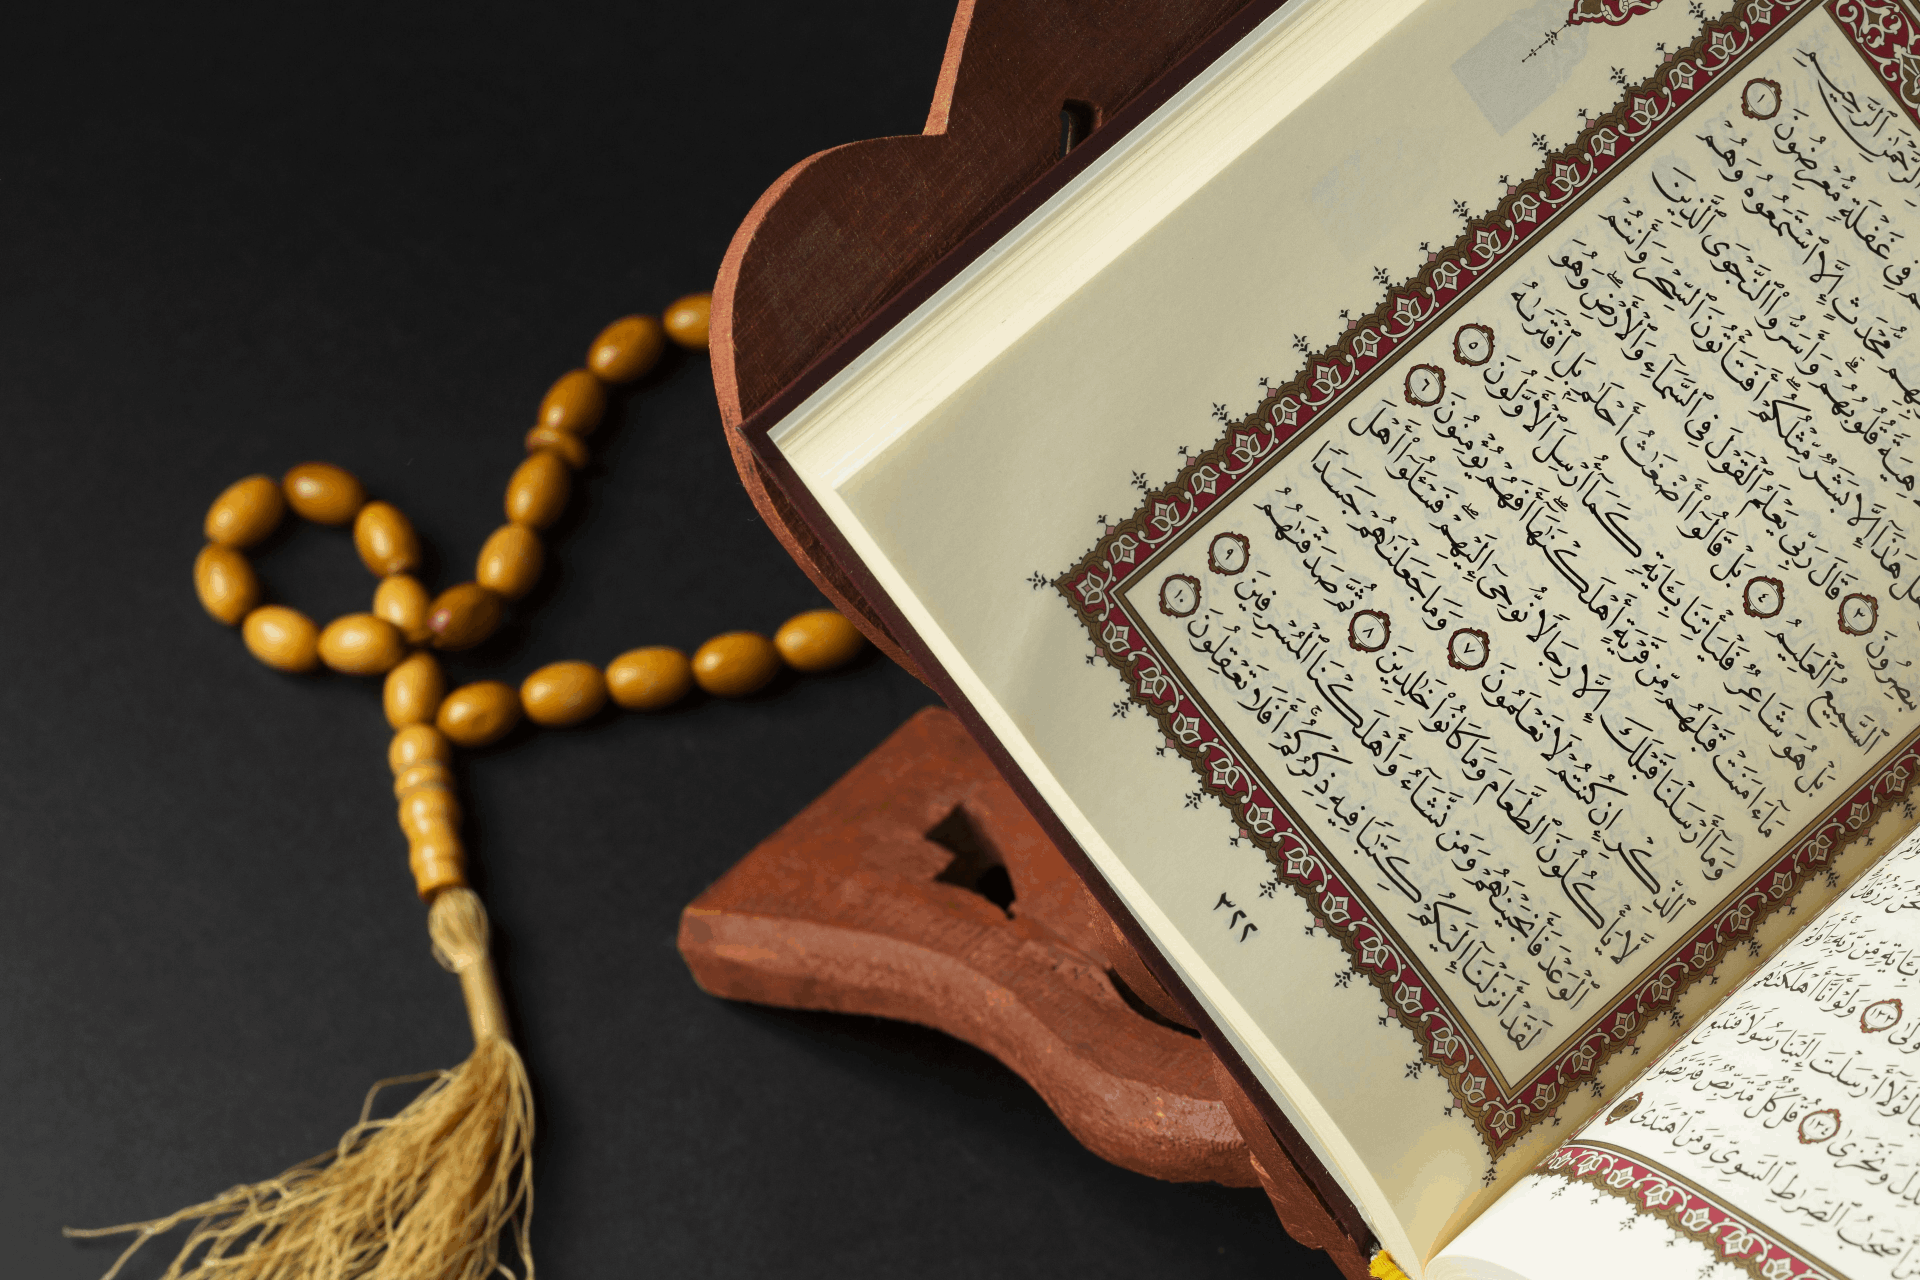 ٱلرَّحْمَٰنِ ٱلرَّحِيمِ
فِى غَفْلَةٍ مُّعْرِضُونَ ١
مُّحْدَثٍ إِلَّا ٱسْتَمَعُوهُ وَهُمْ
لَاهِيَةً قُلُوبُهُمْ وَأَسَرُّوا۟ ٱلنَّجْوَى ٱلَّذِينَ
هَلْ هَٰذَآ إِلَّا بَشَرٌ مِّثْلُكُمْ أَفَتَأْتُونَ ٱلسِّحْرَ وَأَنتُمْ
تُبْصِرُونَ ٣ قَالَ رَبِّى يَعْلَمُ ٱلْقَوْلَ فِى ٱلسَّمَآءِ وَٱلْأَرْضِ وَهُوَ
ٱلسَّمِيعُ ٱلْعَلِيمُ ٤ بَلْ قَالُوٓا۟ أَضْغَٰثُ أَحْلَٰمٍۭ بَلِ ٱفْتَرَىٰهُ
بَلْ هُوَ شَاعِرٌ فَلْيَأْتِنَا بِـَٔايَةٍ كَمَآ أُرْسِلَ ٱلْأَوَّلُونَ ٥
مَآ ءَامَنَتْ قَبْلَهُم مِّن قَرْيَةٍ أَهْلَكْنَٰهَآ أَفَهُمْ يُؤْمِنُونَ ٦
وَمَآ أَرْسَلْنَا قَبْلَكَ إِلَّا رِجَالًا نُّوحِىٓ إِلَيْهِمْ فَسْـَٔلُوٓا۟ أَهْلَ
ٱلذِّكْرِ إِن كُنتُمْ لَا تَعْلَمُونَ ٧ وَمَا جَعَلْنَٰهُمْ جَسَدًا
لَّا يَأْكُلُونَ ٱلطَّعَامَ وَمَا كَانُوا۟ خَٰلِدِينَ ٨ ثُمَّ صَدَقْنَٰهُمُ
ٱلْوَعْدَ فَأَنجَيْنَٰهُمْ وَمَن نَّشَآءُ وَأَهْلَكْنَا ٱلْمُسْرِفِينَ ٩
لَقَدْ أَنزَلْنَآ إِلَيْكُمْ كِتَٰبًا فِيهِ ذِكْرُكُمْ أَفَلَا تَعْقِلُونَ ١٠
٣٢٢
نَحْنُ نَرْزُقُكَ
بِـَٔايَةٍ مِّن رَّبِّهِۦٓ أَوَلَمْ
١٣٣ وَلَوْ أَنَّآ أَهْلَكْنَٰهُم
لَوْلَآ أَرْسَلْتَ إِلَيْنَا رَسُولًا فَنَتَّبِعَ
وَنَخْزَىٰ ١٣٤ قُلْ كُلٌّ مُّتَرَبِّصٌ فَتَرَبَّصُوا۟
أَصْحَٰبُ ٱلصِّرَٰطِ ٱلسَّوِىِّ وَمَنِ ٱهْتَدَىٰ